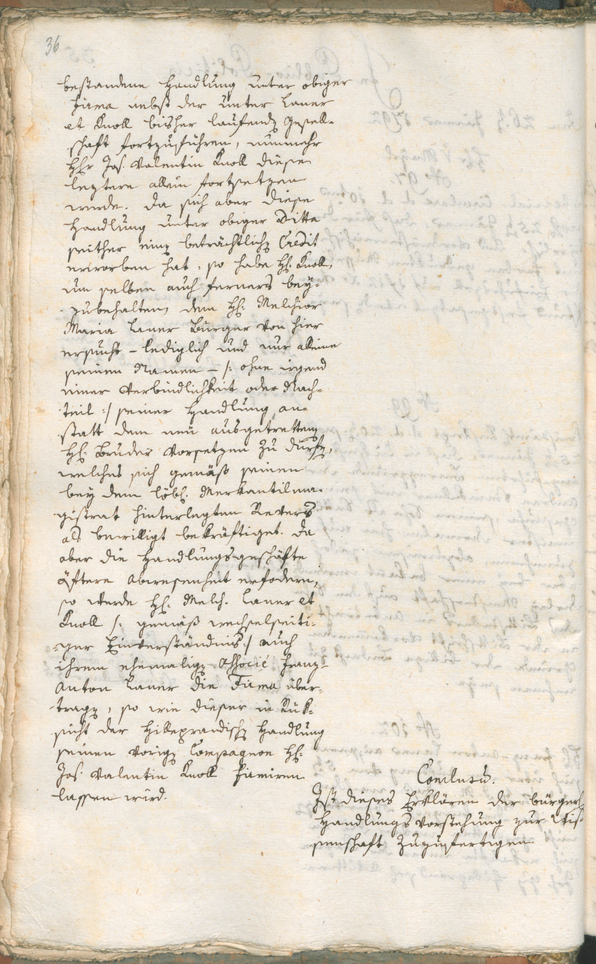 36
bestandene Handlung unter obiger
Firma nebst der unter Laner
et Knoll bisher laufends Gesell-
schaft fortzuführen, nunmehr
Hr. Jos. Valentin Knoll diese
leztere allein fortsetzen
werde. Da sich aber diese
Handlung unter obiger Ditta
seither einz beträchtlichz Credit
erworben hat, so habe H: Knoll,
um selben auch ferners bey-
zubehalten, dem H: Melchior
Maria Laner Bürger von hier
ersucht – lediglich und nur alleine
seinen Namen – /: ohne irgend
einer Verbindlichkeit oder Nach-
teil :/ seiner Handlung an-
statt dem neu ausgetrettenen
H: Bruder vorsetzen zu dürfen,
welches sich gemäß seinen
bey dem löbl. Merkantilma-
gistrat hinterlegten Revers
als bewilligt bekräftiget. Da
aber die Handlungsgeschäfte
öftere Abwesenheit erfodern,
so werde H: Melch. Laner et
Knoll /: gemäß wechselseiti-
ger Einverständnis :/ auch
ihrem ehemaligz Associé Franz
Anton Laner die Firma über-
tragen, so wie dieser in Rük-
sicht der Hilleprandisch Handlung
seinen vorigz Compagnon H:
Jos. Valentin Knoll Firmiren
lassen wird.
Conclusum.
Ist dieses Erklären der bürgerl.
Handlungsvorstehung zur Wis-
senschaft zuzufertigen